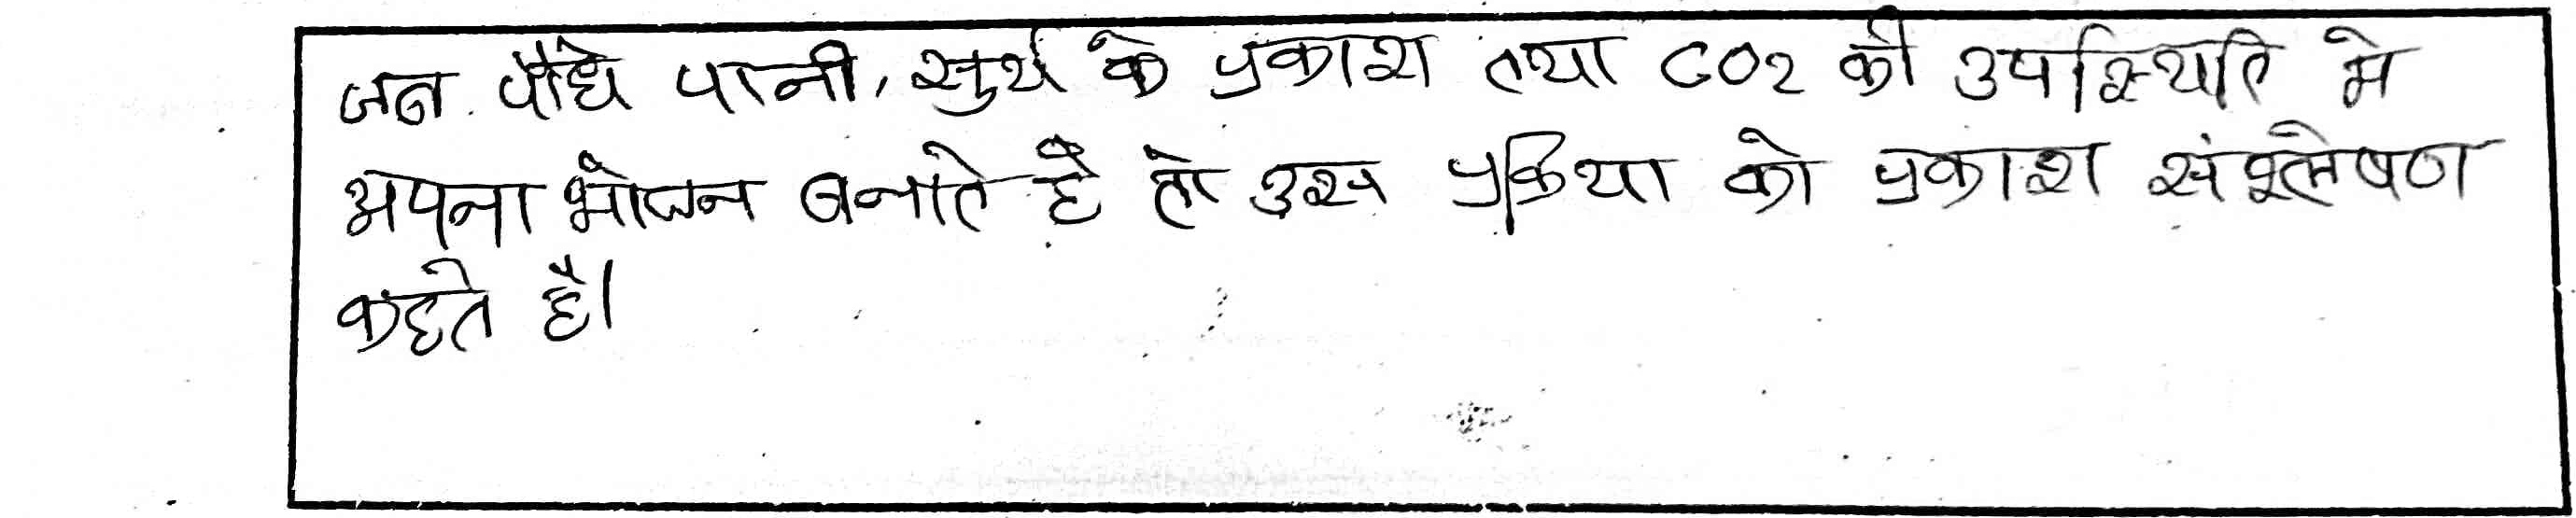 जब पौधे पानी, सुर्य के प्रकाश तथा CO2 की उपस्थिति मे
अपना भोजन बनाते है तो उस प्रक्रिया को प्रकाश संश्लेषण
कहते है।